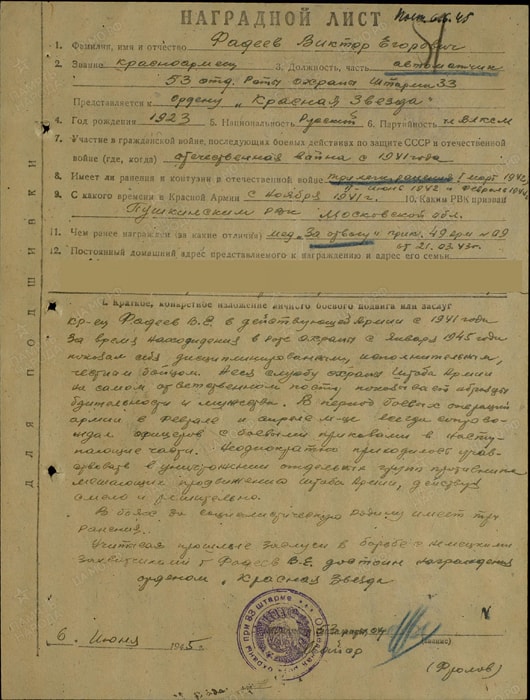 НАГРАДНОЙ ЛИСТ
1. Фамилия, имя и отчество Фадеев Виктор Егорович
2. Звание красноармеец 3. Должность, часть автоматчик
53 отд. Роты охраны Штарма 33
Представляется к ордену „Красная Звезда"
4. Год рождения 1923 5. Национальность Русский 6. Партийность чл. ВЛКСМ
7. Участие в гражданской войне, последующих боевых действиях по защите СССР и отечественной
войне (где, когда) отечественная война с 1941 года
8. Имеет ли ранения и контузии в отечественной войне три легк. ранения март 1942
июнь 1942 и февраль
9. С какого времени в Красной Армии с ноября 1941 г. 10. Каким РВК призван
Пушкинским РВК Московской обл.
11. Чем ранее награжден (за какие отличия) мед. „За отвагу" прик. 49
от 21.03.43г.
12. Постоянный домашний адрес представляемого к награждению и адрес его семьи
1. Краткое, конкретное изложение личного боевого подвига или заслуг
Кр-ец Фадеев В.Е. в действующей Армии с 1941 года
За время нахождения в роте охраны с января 1945 года
показал себя дисциплинированным, исполнительным,
честным бойцом. Неся службу охраны Штаба Армии
на самом ответственном посту показывает образцы
бдительности и мужества. В период боевых операций
армии в феврале и апреле м-це всегда сопровождал
офицеров с боевыми приказами в наступающие
части. Неоднократно приходилось участвовать
в уничтожении отдельных групп противника
мешающих продвижению Штаба Армии, действуя
смело и решительно.
В боях за социалистическую родину имеет три
ранения.
Учитывая прошлые заслуги в борьбе с немецкими
захватчиками т. Фадеев В.Е. достоин награждения
орденом „Красная Звезда"
6. Июня 1945 г.
(Фролов)
для подшивки